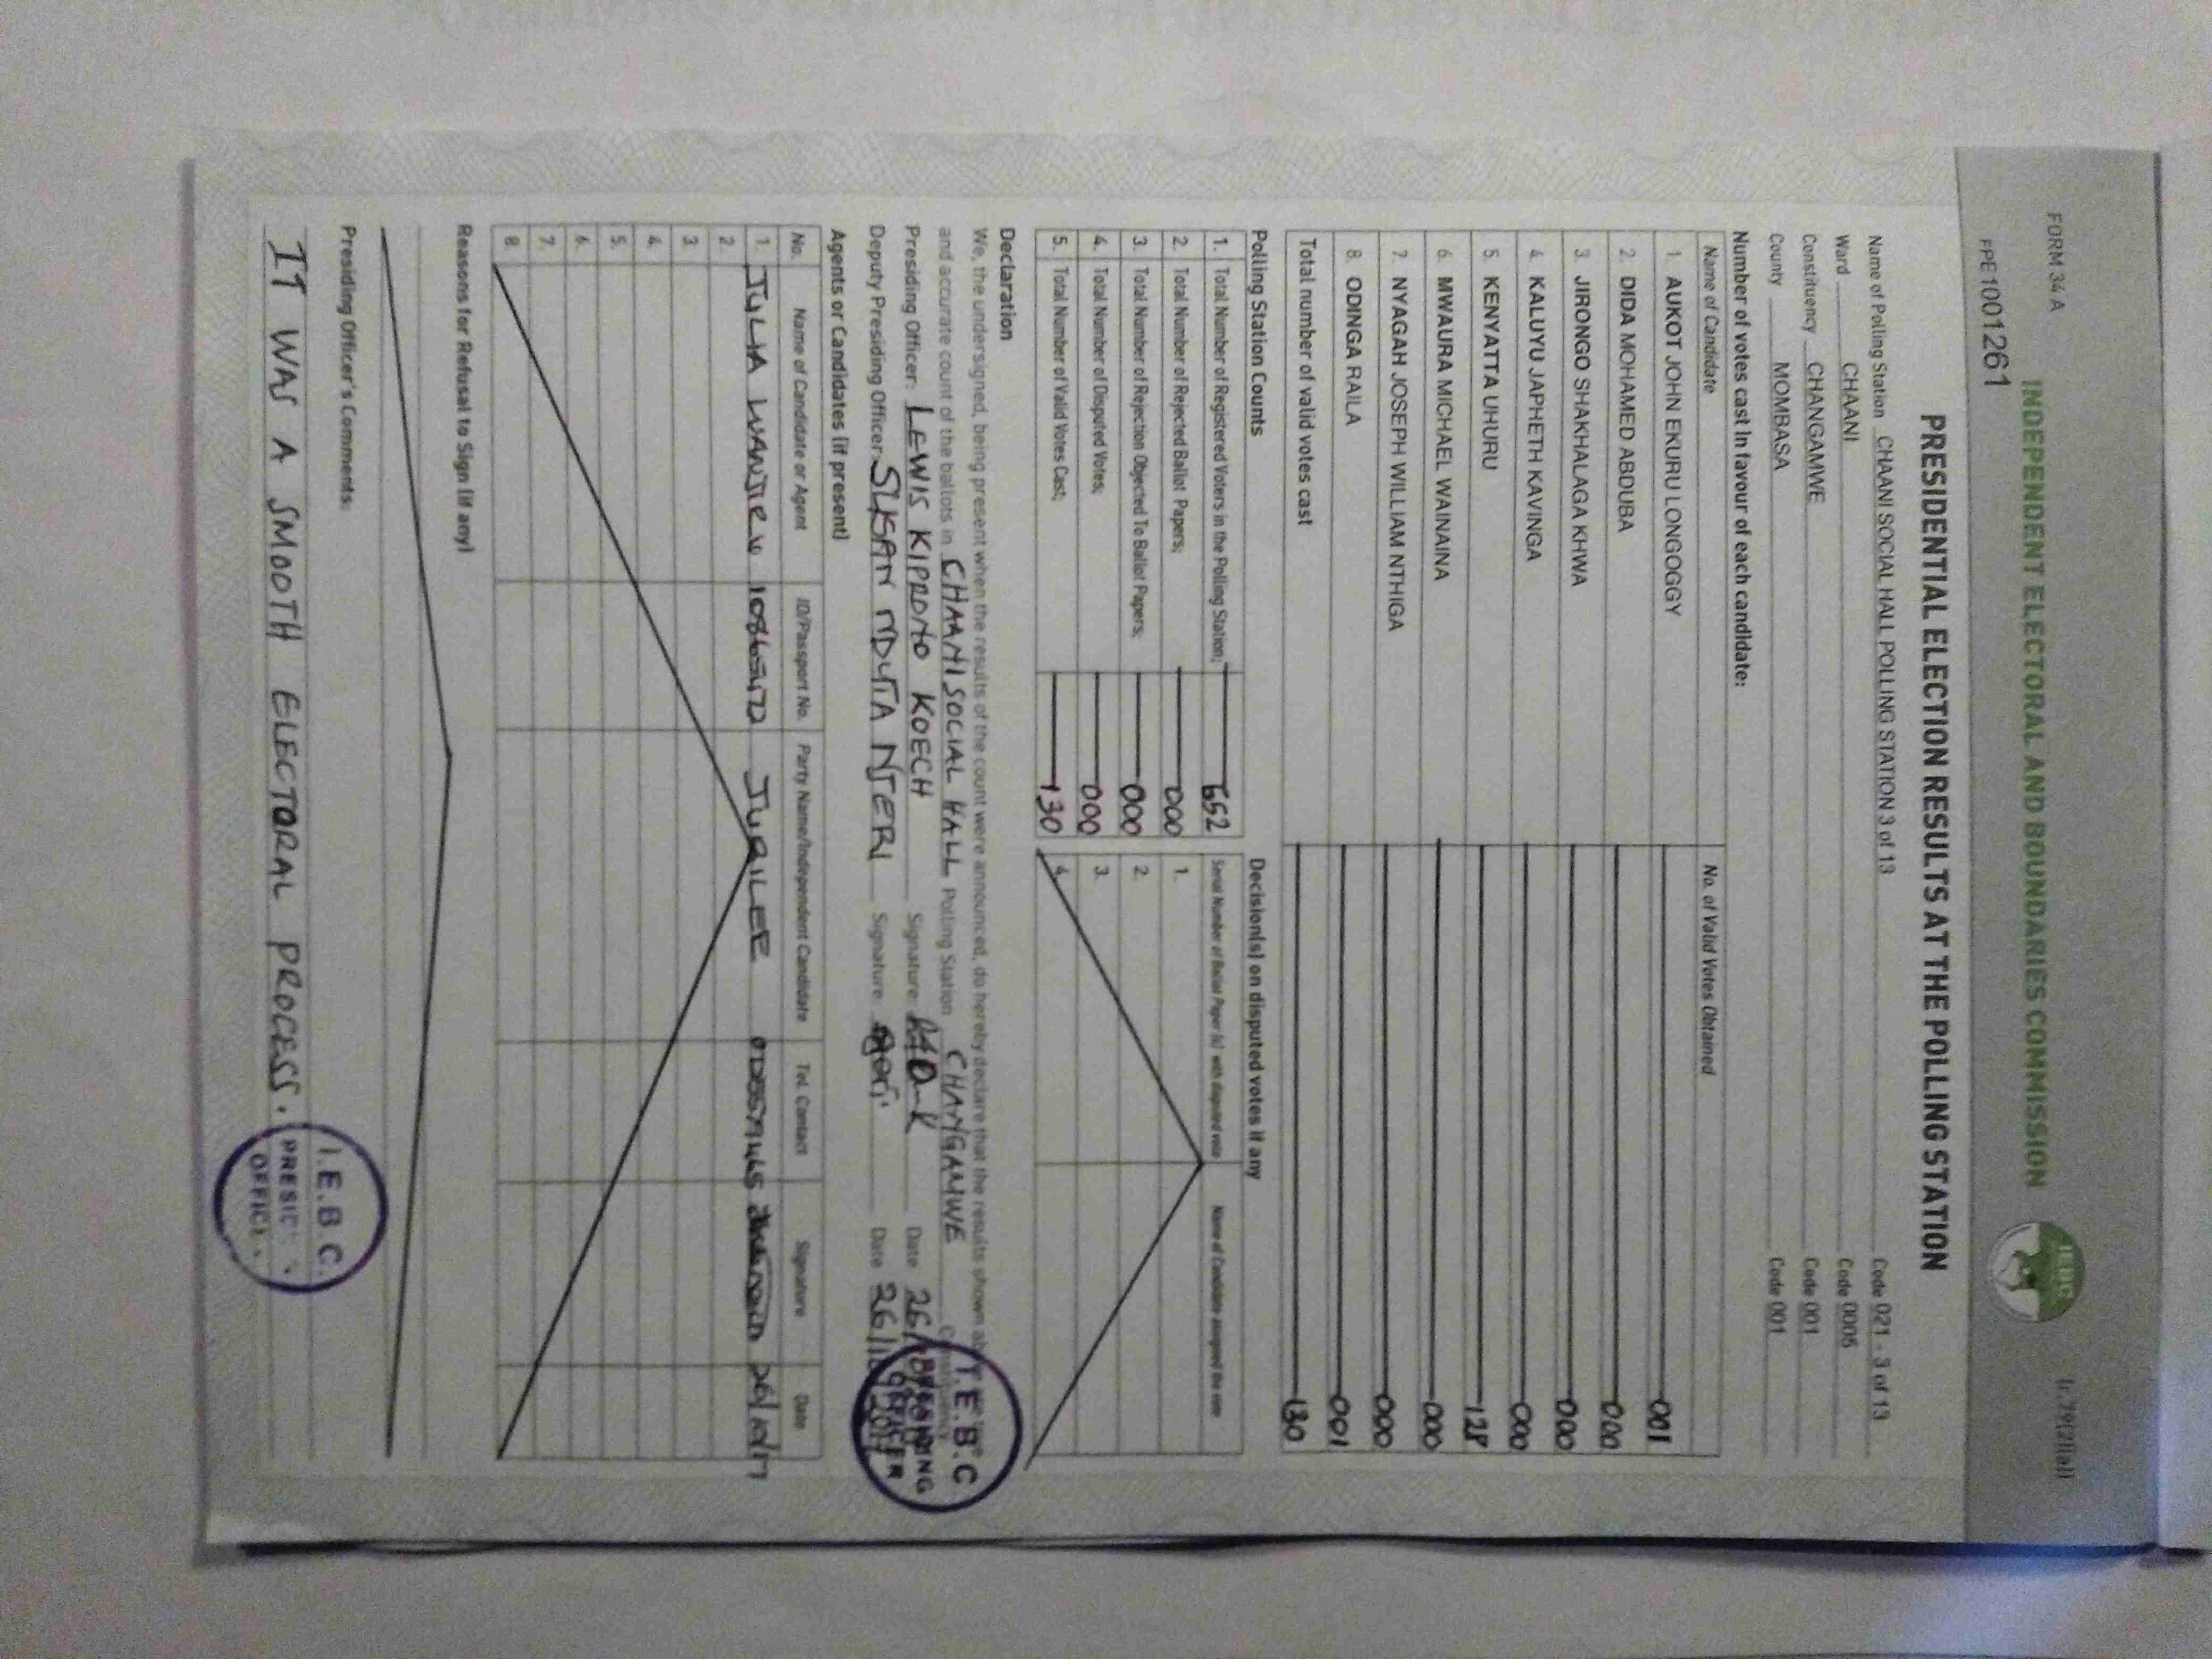 FORM 34 A
INDEPENDENT ELECTORAL AND BOUNDARIES COMMISSION
IEBC
FPE1001261
PRESIDENTIAL ELECTION RESULTS AT THE POLLING STATION
Name of Polling Station CHAANI SOCIAL HALL POLLING STATION 3 of 13 Code 021 - 3 of 13
Ward CHAANI Code 0005
Constituency CHANGAMWE Code 001
County MOMBASA Code 001
Number of votes cast in favour of each candidate:
Name of Candidate No. of Valid Votes Obtained
1. AUKOT JOHN EKURU LONGOGGY 001
2. DIDA MOHAMED ABDUBA 000
3. JIRONGO SHAKHALAGA KHWA 000
4. KALUYU JAPHETH KAVINGA 000
5. KENYATTA UHURU 128
6. MWAURA MICHAEL WAINAINA 000
7. NYAGAH JOSEPH WILLIAM NTHIGA 000
8. ODINGA RAILA 001
Total number of valid votes cast 130
Polling Station Counts
1. Total Number of Registered Voters in the Polling Station; 652
2. Total Number of Rejected Ballot Papers; 000
3. Total Number of Rejection Objected To Ballot Papers; 000
4. Total Number of Disputed Votes; 000
5. Total Number of Valid Votes Cast; 130
Decision(s) on disputed votes if any
Serial Number of Ballot Paper (s) with disputed vote Name of Candidate assigned the vote
1.
2.
3.
4.
Declaration
We, the undersigned, being present when the results of the count were announced, do hereby declare that the results shown
and accurate count of the ballots in CHAANI SOCIAL HALL Polling Station CHANGAMWE
Presiding Officer: LEWIS KIPRONO KOECH Signature Date 26/
Deputy Presiding Officer: SUSAN NDUTA NJERI Signature Date 26/10/2017
I.E.B.C
PRESIDING
OFFICER
Agents or Candidates (if present)
No. Name of Candidate or Agent ID/Passport No. Party Name/Independent Candidate Tel. Contact Signature Date
1. JULIA JUBILEE 26/10/17
2.
3.
4.
5.
6.
7.
8.
Reasons for Refusal to Sign (if any)
Presiding Officer's Comments:
IT WAS A SMOOTH ELECTORAL PROCESS.
I.E.B.C.